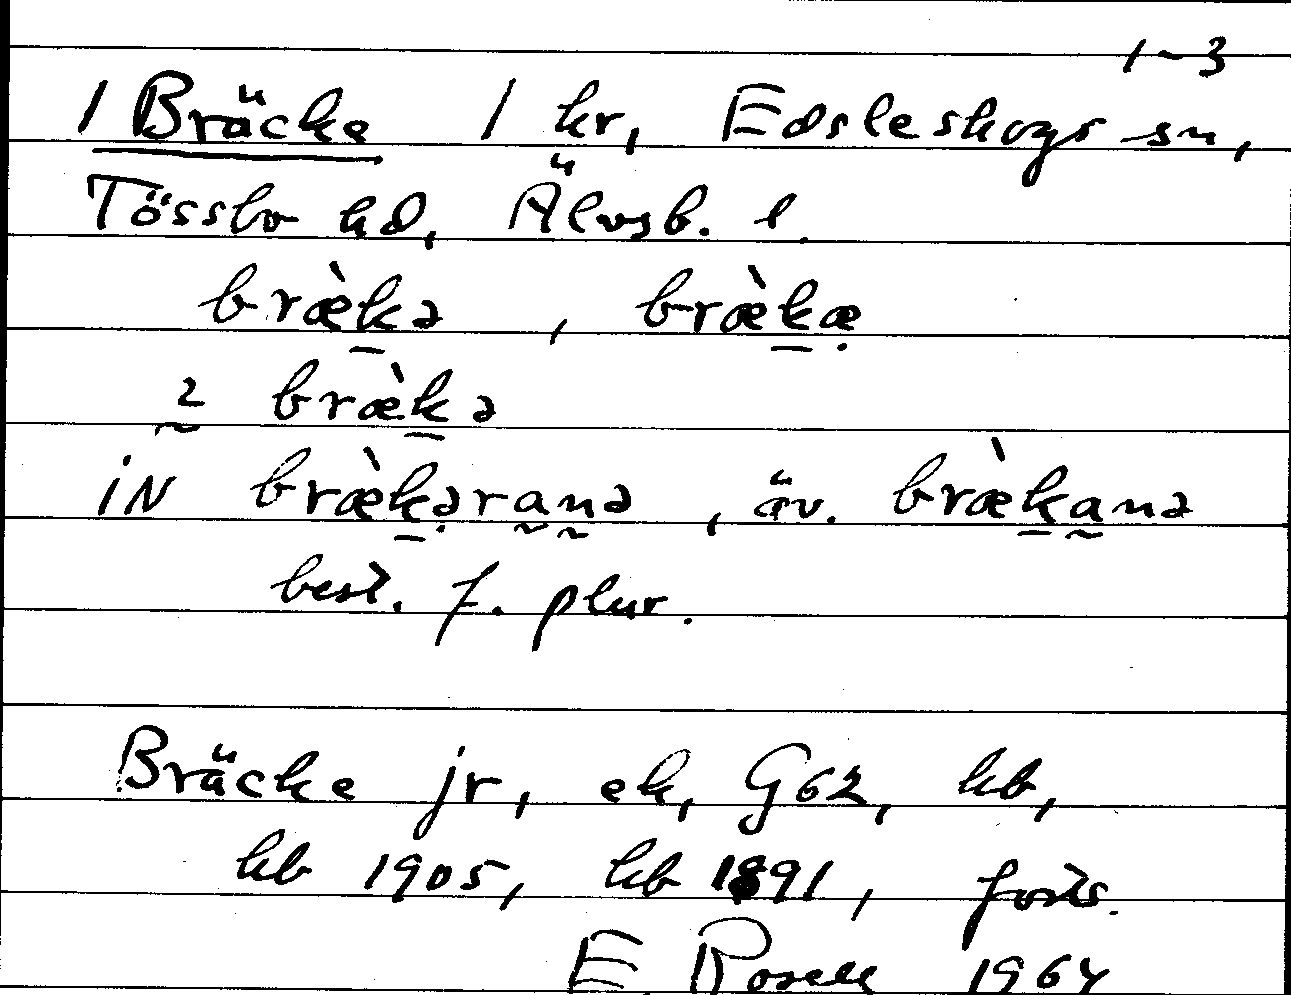 1-3
1 Bräcke 1 kr, Edsleskogs sn,
Tössbo hd, Älvsb. l.
bræ̀k̲ə , bræ̀k̲æ̣
2̰ bræ̀k̲ə
iN bræ̀k̲ə̣ra̰n̰ə , äv. bræ̀k̲a̰nə
best. f. plur.
Bräcke jr, ek, G62, kb,
kb 1905, hb 1891, forts.
E. Rosell 1964